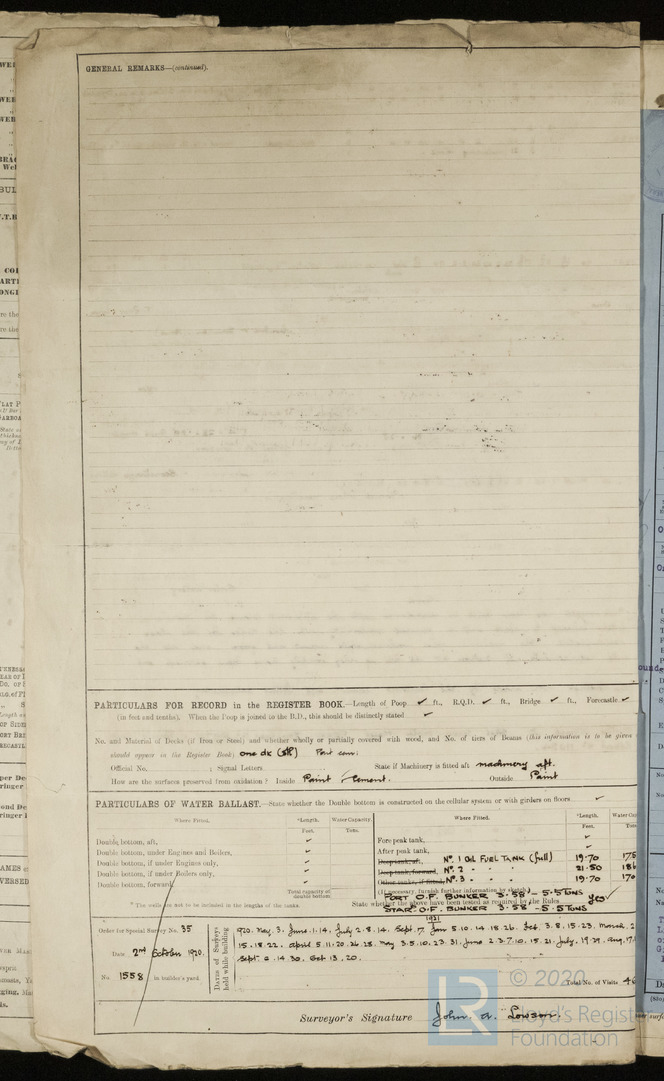 GENERAL REMARKS—(continued).
PARTICULARS FOR RECORD in the REGISTER BOOK.—Length of Poop ✓ ft., R.Q.D. ✓ ft., Bridge ✓ ft., Forecastle ✓
(in feet and tenths). When the Poop is joined to the B.D., this should be distinctly stated ✓
No. and Material of Decks (if Iron or Steel) and whether wholly or partially covered with wood, and No. of tiers of Beams (this information is to be given
should appear in the Register Book) one dk (Stl) Part cem:
Official No. ; Signal Letters State if Machinery is fitted aft machinery aft.
How are the surfaces preserved from oxidation? Inside Paint & Cement. Outside Paint
PARTICULARS OF WATER BALLAST.—State whether the Double bottom is constructed on the cellular system or with girders on floors ✓
Where Fitted. *Length. Water Capacity. Where Fitted. *Length.
Feet. Tons. Feet. Tons
Double bottom, aft, ✓ Fore peak tank, ✓
Double bottom, under Engines and Boilers, ✓ After peak tank, ✓
Double bottom, if under Engines only, ✓ Deep tank, aft, No. 1 Oil FUEL TANK (full) 19·70 175
Double bottom, if under Boilers only, ✓ Deep tank, forward, No. 2 " " " 21·50 186
Double bottom, forward, ✓ Other tanks, if fitted, No. 3 " " " 19·70 170
Total capacity of double bottom (If necessary, furnish further information by sketch.)
PORT O.F. BUNKER 3·58 - 5·5 TONS
* The wells are not to be included in the lengths of the tanks State whether the above have been tested as required by the Rules Yes ✓
STAR^D O.F BUNKER 3·58 - 5·5 TONS
1921
Order for Special Survey No. 35
Date 2nd October 1920.
No. 1558 in builder's yard
Dates of Surveys held while building
920. May. 3. June. 1. 14. July 2. 8. 14. Sept. 7. Jan 5. 10. 14. 18. 26. Feb. 3. 8. 15. 23. March. 2
15. 18. 22. April 5. 11. 20. 26. 28. May 3. 5. 10. 23. 31. June 2. 3. 7. 10. 15. 21. July. 19. 29. Aug. 17.
Sept 6. 14 30. Oct 13. 20.
Total No. of Visits 46
Surveyor's Signature John A. Lowson.
LR
© 2020
Lloyd's Register
Foundation